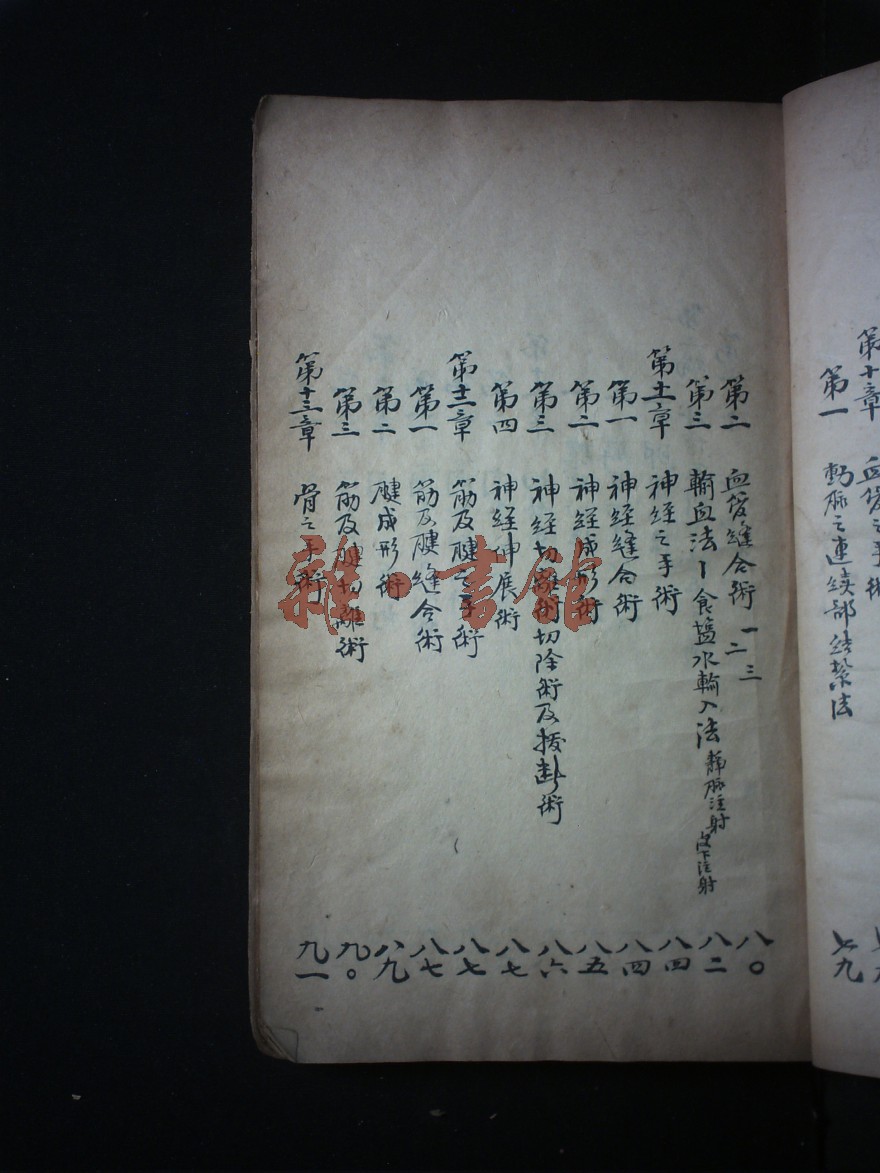 第十章 血管之手術
第一 動脈之連續部結紮法 七九
第二 血管縫合術 一 二 三 八〇
第三 輸血法 食鹽水輸入法 靜脈注射 皮下注射 八二
第十一章 神経之手術 八四
第一 神経縫合術 八四
第二 神経成形術 八五
第三 神経切離術切除術及拔断術 八六
第四 神経伸展術 八七
第十二章 筋及腱之手術 八七
第一 筋及腱縫合術 八七
第二 腱成形術 八九
第三 筋及腱切離術 九〇
第十三章 骨之手術 九一
雜·書館